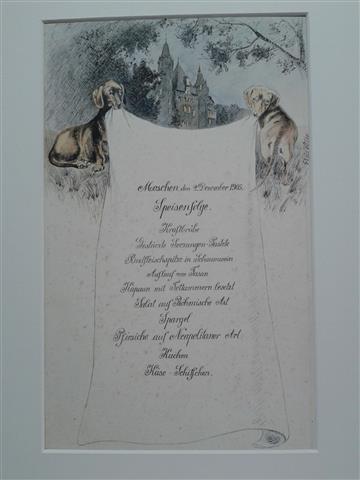 Moschen, den 4. Dezember 1905.
Speisenfolge.
Kraftbrühe
Gestürzte Seezungen-Pastete
Rindfleischspitze in Schaumwein
Auflauf von Fasan
Kapaun mit besetzt
Salat auf Böhmische Art
Spargel
Pfirsiche auf Neapolitaner Art.
Kuchen
Käse-Schiffchen.